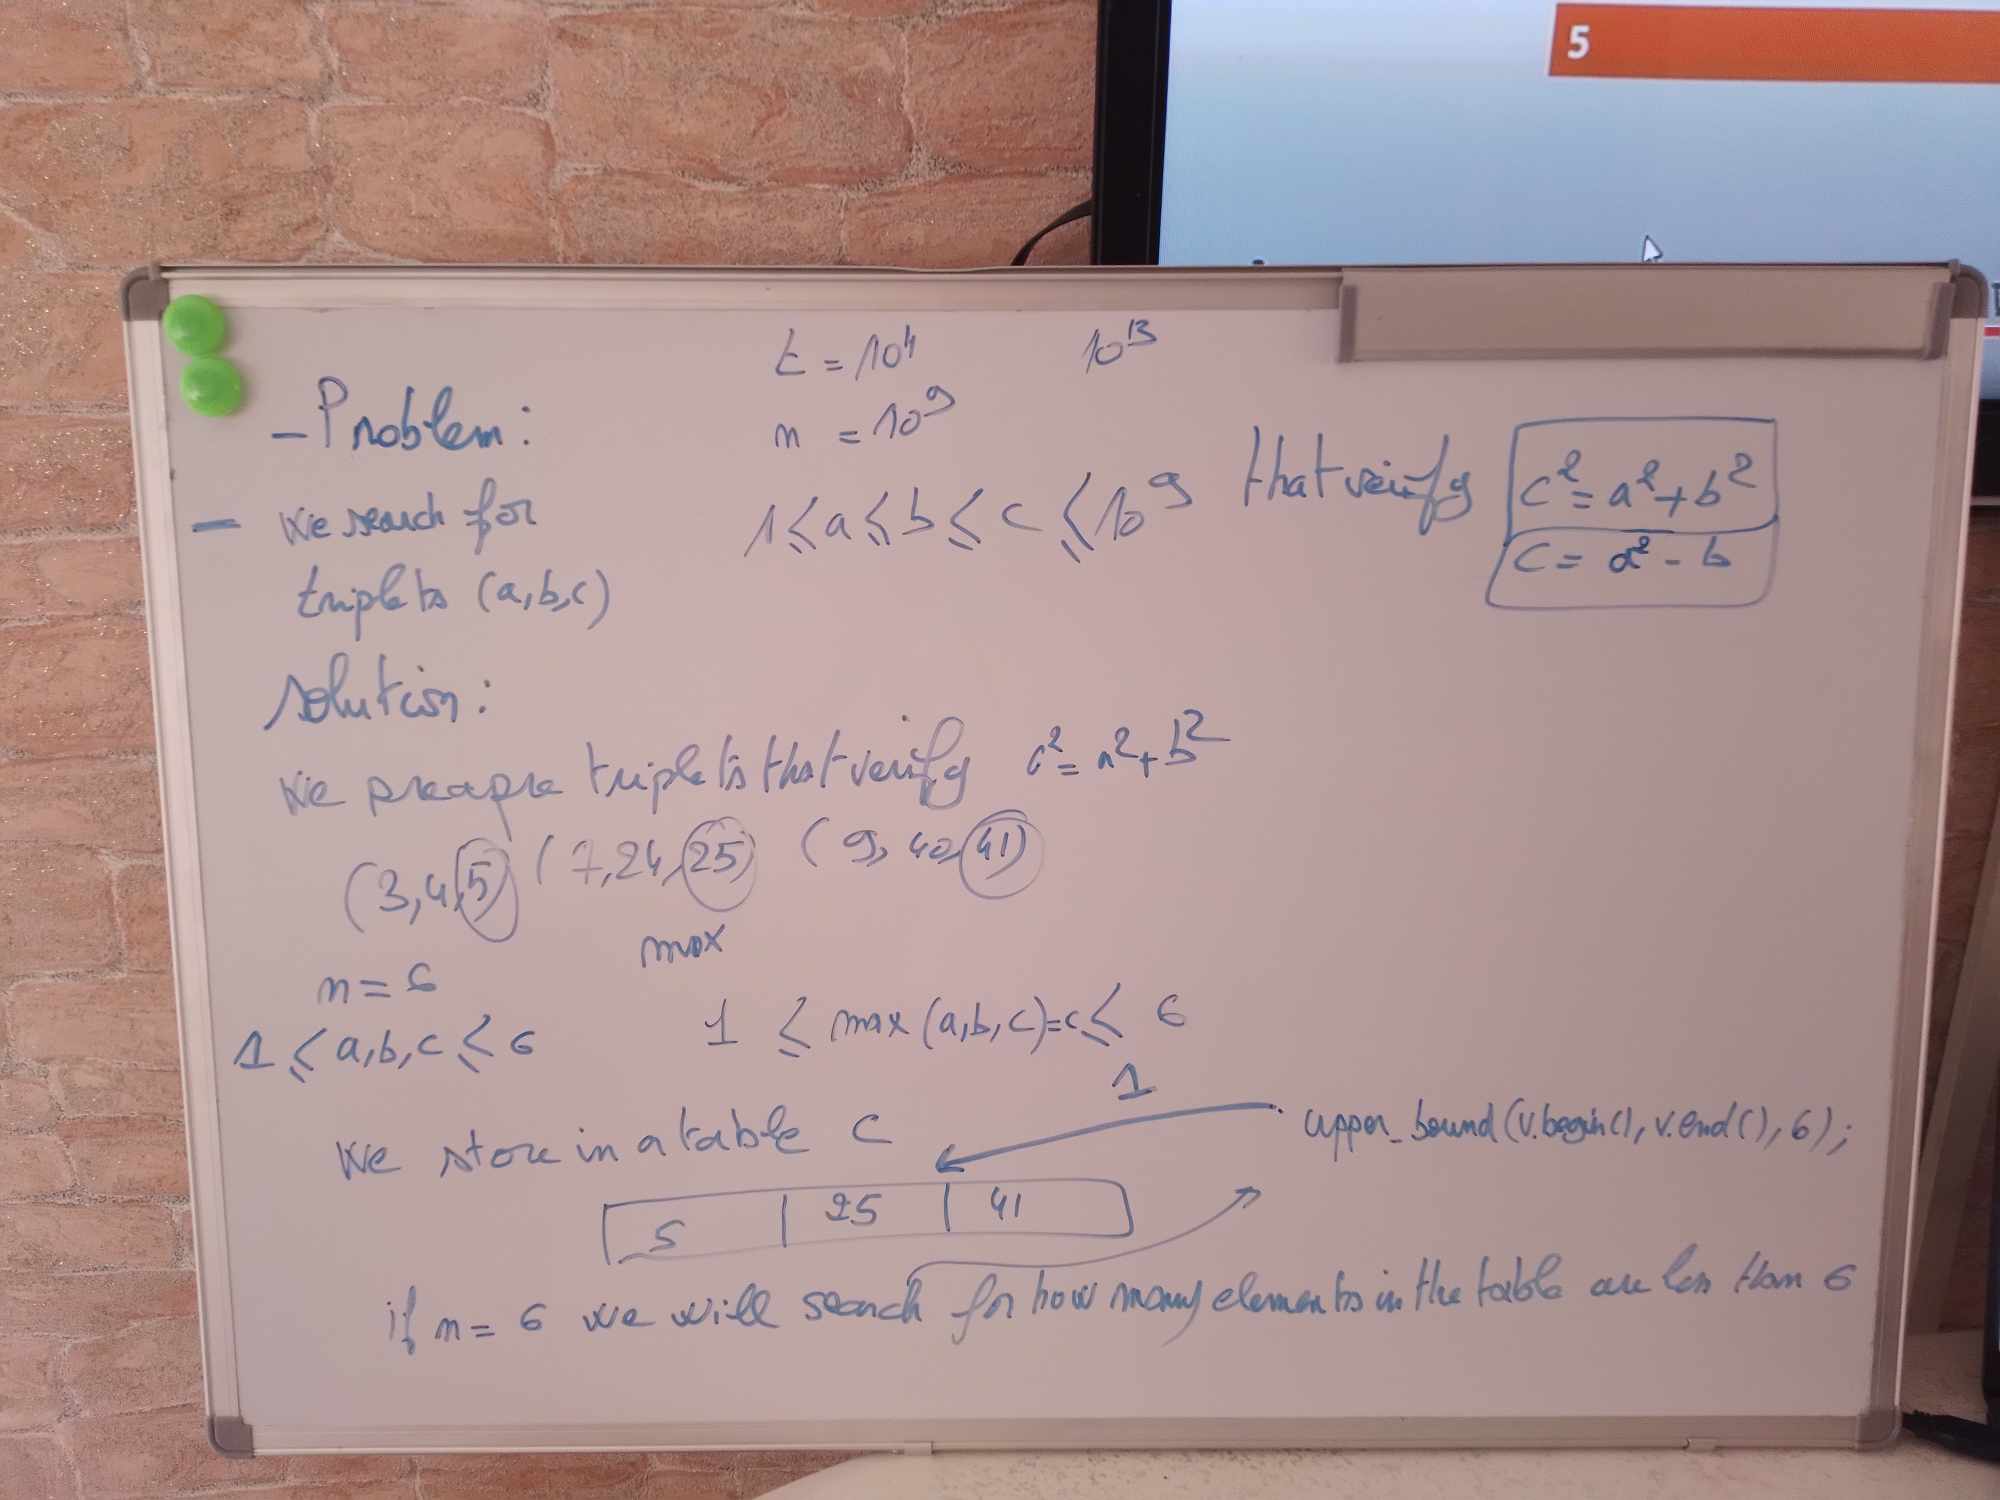 5
t = 10⁴ 10¹³
- Problem:
n = 10⁹
- We search for 1 ≤ a ≤ b ≤ c ≤ 10⁹ that verify c² = a² + b²
triplets (a,b,c) c = a² - b
solution:
We preapre triplets that verify c² = a² + b²
(3,4,5) (7,24,25) (9,40,41)
max
n = 6
1 ≤ a,b,c ≤ 6 1 ≤ max (a,b,c)=c ≤ 6
1
We store in a table c upper_bound(v.begin(), v.end(), 6);
5 | 25 | 41
if n = 6 we will search for how many elements in the table are less than 6